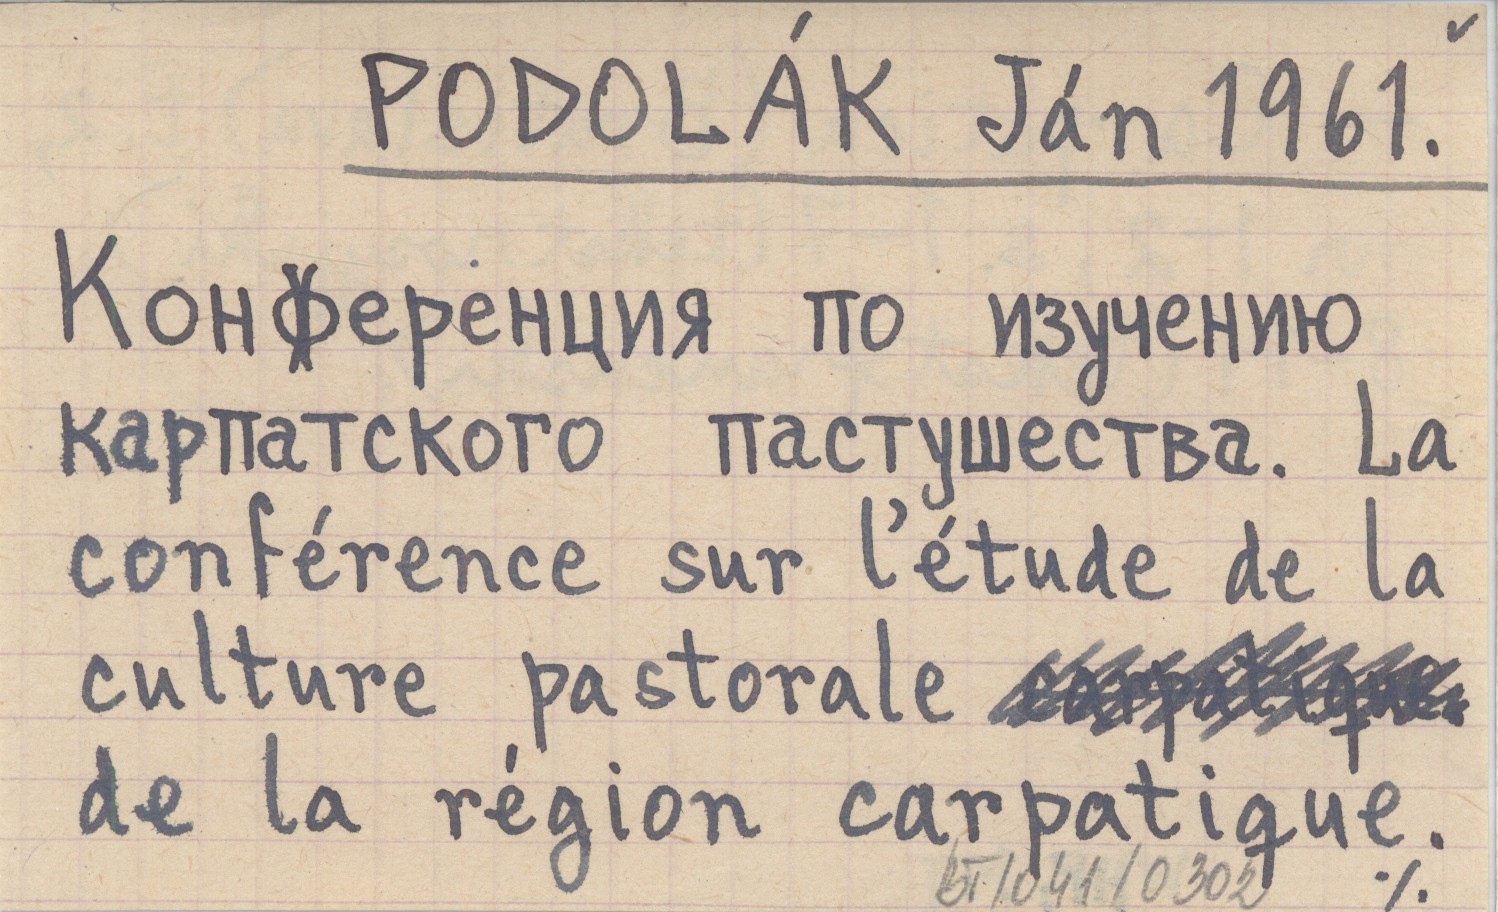 PODOLÁK Ján 1961.
Конференция по изучению
карпатского пастушества. La
conférence sur l'étude de la
culture pastorale
de la région carpatique.
/041/0302 ./.